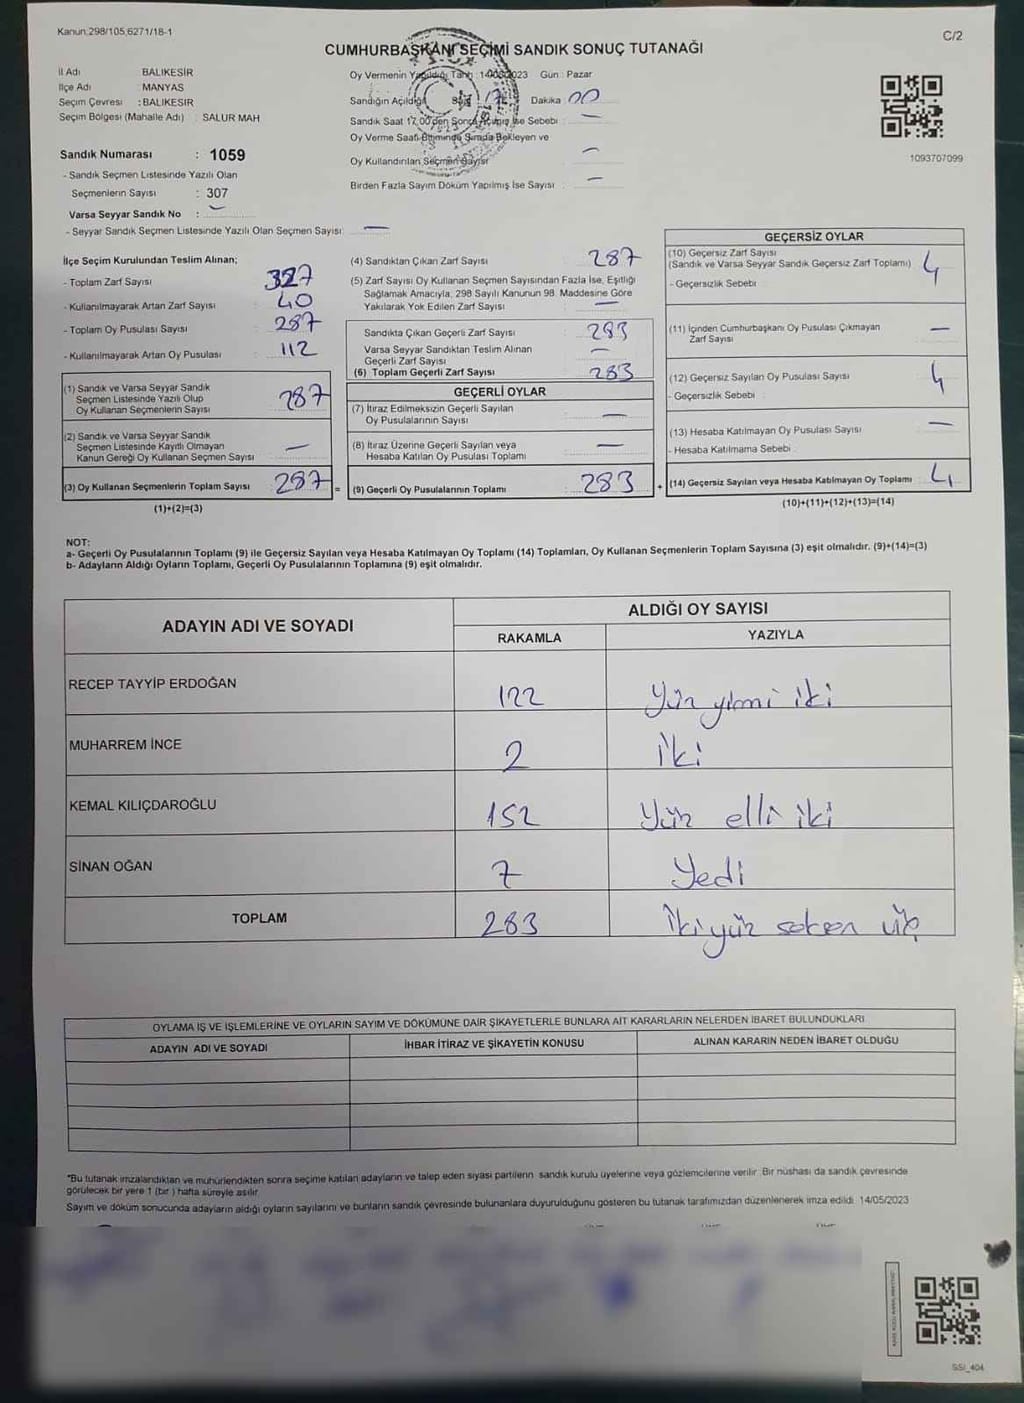 Kanun;298/105;6271/18-1
C/2
CUMHURBAŞKANI SEÇİMİ SANDIK SONUÇ TUTANAĞI
İl Adı BALIKESİR
İlçe Adı MANYAS
Seçim Çevresi : BALIKESİR
Seçim Bölgesi (Mahalle Adı) : SALUR MAH
Sandık Numarası : 1059
- Sandık Seçmen Listesinde Yazılı Olan
Seçmenlerin Sayısı : 307
Varsa Seyyar Sandık No : —
- Seyyar Sandık Seçmen Listesinde Yazılı Olan Seçmen Sayısı: —
Oy Vermenin Yapıldığı Tarih : 14/05/2023 Gün : Pazar
Sandığın Açıldığı Saat 17 Dakika 00
Sandık Saat 17.00'den Sonra Açılmış İse Sebebi : —
Oy Verme Saati Bitiminde Sırada Bekleyen ve
Oy Kullandırılan Seçmen Sayısı —
Birden Fazla Sayım Döküm Yapılmış İse Sayısı : —
1093707099
İlçe Seçim Kurulundan Teslim Alınan;
- Toplam Zarf Sayısı 327
- Kullanılmayarak Artan Zarf Sayısı 40
- Toplam Oy Pusulası Sayısı 287
- Kullanılmayarak Artan Oy Pusulası 112
(1) Sandık ve Varsa Seyyar Sandık
Seçmen Listesinde Yazılı Olup
Oy Kullanan Seçmenlerin Sayısı 287
(2) Sandık ve Varsa Seyyar Sandık
Seçmen Listesinde Kayıtlı Olmayan
Kanun Gereği Oy Kullanan Seçmen Sayısı —
(3) Oy Kullanan Seçmenlerin Toplam Sayısı 287 =
(1)+(2)=(3)
(4) Sandıktan Çıkan Zarf Sayısı 287
(5) Zarf Sayısı Oy Kullanan Seçmen Sayısından Fazla İse, Eşitliği
Sağlamak Amacıyla, 298 Sayılı Kanunun 98. Maddesine Göre
Yakılarak Yok Edilen Zarf Sayısı —
Sandıkta Çıkan Geçerli Zarf Sayısı 283
Varsa Seyyar Sandıktan Teslim Alınan
Geçerli Zarf Sayısı —
(6) Toplam Geçerli Zarf Sayısı 283
GEÇERLİ OYLAR
(7) İtiraz Edilmeksizin Geçerli Sayılan
Oy Pusulalarının Sayısı —
(8) İtiraz Üzerine Geçerli Sayılan veya
Hesaba Katılan Oy Pusulası Toplamı —
(9) Geçerli Oy Pusulalarının Toplamı 283 +
GEÇERSİZ OYLAR
(10) Geçersiz Zarf Sayısı
(Sandık ve Varsa Seyyar Sandık Geçersiz Zarf Toplamı) 4
- Geçersizlik Sebebi
(11) İçinden Cumhurbaşkanı Oy Pusulası Çıkmayan
Zarf Sayısı —
(12) Geçersiz Sayılan Oy Pusulası Sayısı 4
- Geçersizlik Sebebi :
(13) Hesaba Katılmayan Oy Pusulası Sayısı —
- Hesaba Katılmama Sebebi :
(14) Geçersiz Sayılan veya Hesaba Katılmayan Oy Toplamı 4
(10)+(11)+(12)+(13)=(14)
NOT:
a- Geçerli Oy Pusulalarının Toplamı (9) ile Geçersiz Sayılan veya Hesaba Katılmayan Oy Toplamı (14) Toplamları, Oy Kullanan Seçmenlerin Toplam Sayısına (3) eşit olmalıdır. (9)+(14)=(3)
b- Adayların Aldığı Oyların Toplamı, Geçerli Oy Pusulalarının Toplamına (9) eşit olmalıdır.
ADAYIN ADI VE SOYADI ALDIĞI OY SAYISI
RAKAMLA YAZIYLA
RECEP TAYYİP ERDOĞAN 122 Yüz yimi iki
MUHARREM İNCE 2 iki
KEMAL KILIÇDAROĞLU 152 Yüz elli iki
SİNAN OĞAN 7 Yedi
TOPLAM 283 ikiyüz seksen üç
OYLAMA İŞ VE İŞLEMLERİNE VE OYLARIN SAYIM VE DÖKÜMÜNE DAİR ŞİKAYETLERLE BUNLARA AİT KARARLARIN NELERDEN İBARET BULUNDUKLARI
ADAYIN ADI VE SOYADI İHBAR İTİRAZ VE ŞİKAYETİN KONUSU ALINAN KARARIN NEDEN İBARET OLDUĞU
*Bu tutanak imzalandıktan ve mühürlendikten sonra seçime katılan adayların ve talep eden siyasi partilerin sandık kurulu üyelerine veya gözlemcilerine verilir. Bir nüshası da sandık çevresinde
görülecek bir yere 1 (bir) hafta süreyle asılır.
Sayım ve döküm sonucunda adayların aldığı oyların sayılarını ve bunların sandık çevresinde bulunanlara duyurulduğunu gösteren bu tutanak tarafımızdan düzenlenerek imza edildi. 14/05/2023
GSI_404